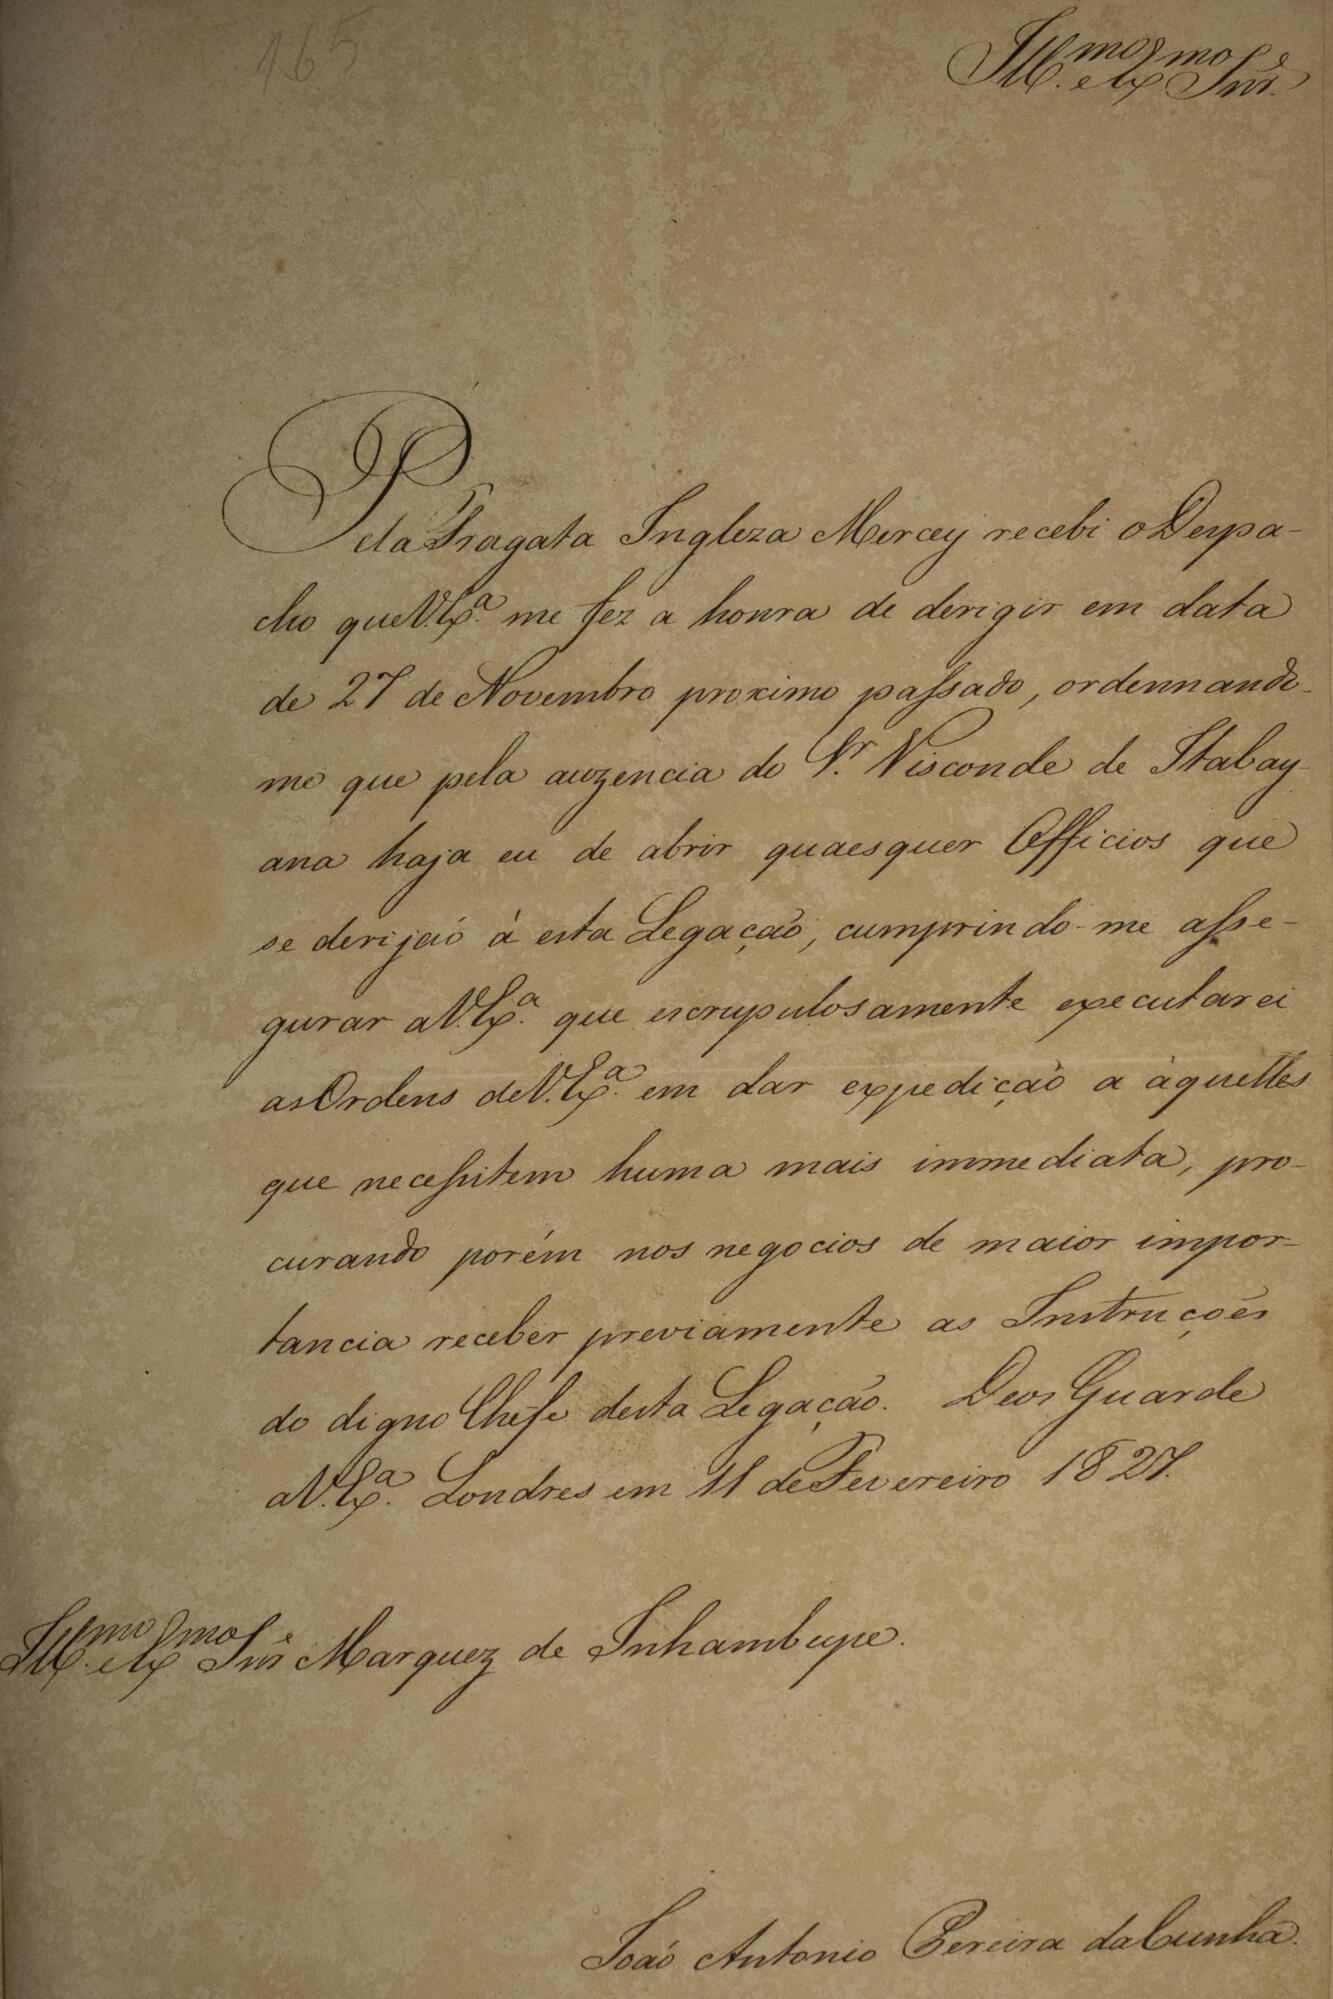 165
Ill.mo e Ex.mo Snr.
Pela Fragata Ingleza Mercey recebi o Despa-
cho que V. Ex.a me fez a honra de derigir em data
de 27 de Novembro proximo passado, ordennando-
me que pela auzencia do S.r Visconde de Itabay-
ana haja eu de abrir quaesquer Officios que
se derijaõ à esta Legaçaõ, cumprindo-me asse-
gurar a V. Ex.a que escrupulosamente executarei
as Ordens de V. Ex.a em dar expediçaõ a àquelles
que necessitem huma mais immediata, pro-
curando porém nos negocios de maior impor-
tancia receber previamente as Instruçoẽs
do digno Chefe desta Legaçaõ. Deos Guarde
a V. Ex.a Londres em 11 de Fevereiro 1827.
Ill.mo e Ex.mo Snr Marquez de Inhambupe.
Joaõ Antonio Pereira da Cunha.